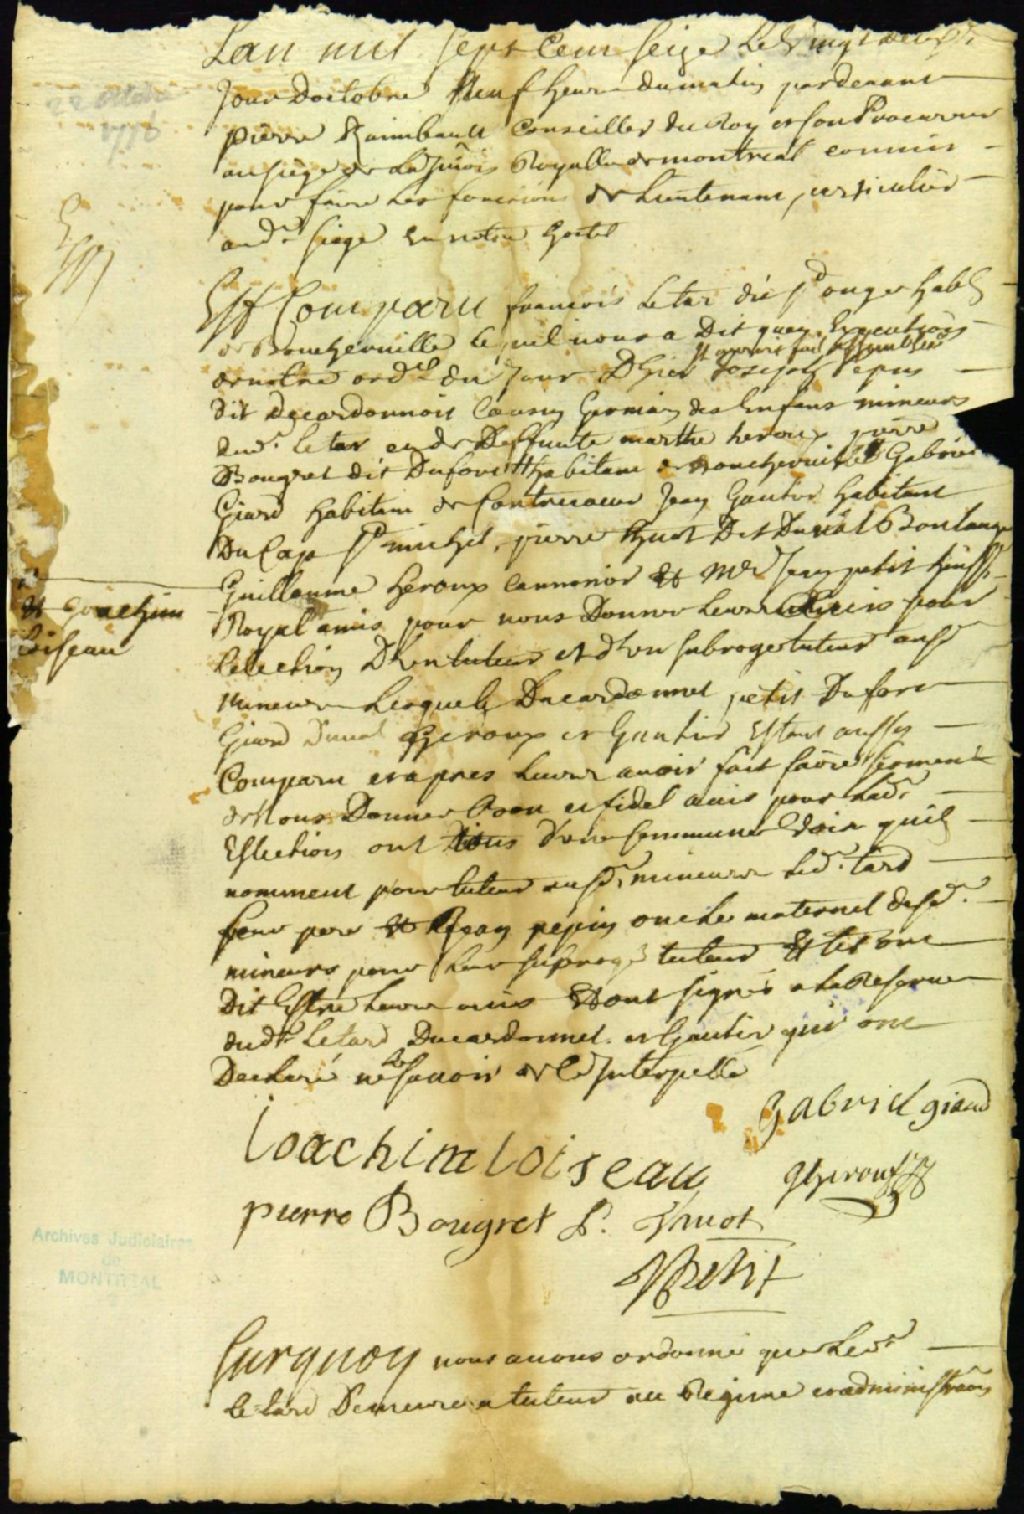 Lan mil sept Cent Seize Le Vingt
22 octobre
1716
Jour Doctobre Neuf heures du matin pardevant
pierre Raimbault Conseiller du Roy et son Procureur
au siege de La Royalle de montreal commis
pour faire Les fonctions de Lieutenant particulier
aud. siege En notre hostel
Est Comparu francois Letar dit St onge habt
de Boucherville lequel nous a Dit quen Execution
de notre ordce du Jour Dhier Il auroit fait assembler Joseph pepin
dit Decardonnois Cousin Germain des Enfans mineurs
dud. letar et de Deffunte marthe heroux pierre
Bougret dit Dufort habitant de Boucherville Gabriel
Giard habitant de Contrecoeur Jean Gautier habitant
Du Cap St michel, pierre huot Dit Duval Boulanger
Guillaume heroux cannonier & Me Jean petit huissier
& Joachim
Loiseau
Royal amis pour nous Donner Leurs Avis pour
Lelection D'un tuteur et d'un subroge tuteur ausd
mineurs Lesquels Ducardonnet petit Dufort
Giard Duval heroux et Gautier Estant aussy
Comparu et apres Leurs avoir fait faire serment
de Nous Donner Bon et fidel avis pour Lade
Eslection ont tous D'une Commune Voix quils
nomment pour tuteur ausd. mineurs Led. tard
leur pere & Jean pepin oncle maternel desd.
mineurs pour Leur subrogé tuteur Et les ont
Dit Estre Leurs avis Et ont signés a la Reserve
dud. Letard Ducardonnet et Gautier qui ont
Declaré ne le scavoir de ce Interpellé
Gabriel giard
Joachim loiseau
gheroux
pierre Bougret P. huot
JPetit
Archives Judiciaires
de
MONTREAL
Surquoy nous avons ordonné que Ledt
letard Demeurera tuteur au Regime et administration